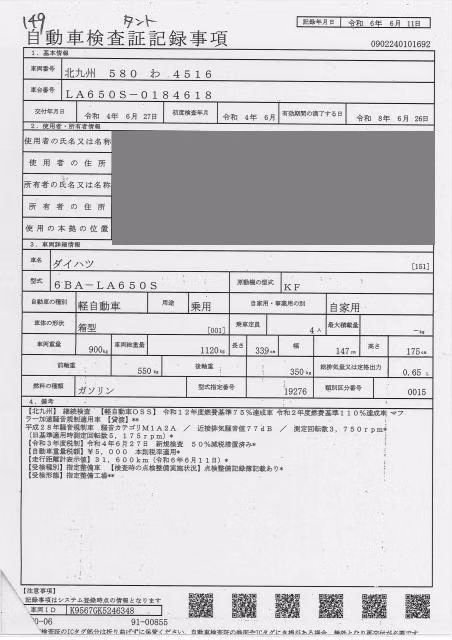 149 タント
記録年月日 令和 6年 6月 11日
自動車検査証記録事項
0902240101692
1. 基本情報
車両番号 北九州 580 わ 4516
車台番号 LA650S-0184618
交付年月日 令和 4年 6月 27日 初度検査年月 令和 4年 6月 有効期間の満了する日 令和 8年 6月 26日
2. 使用者・所有者情報
使用者の氏名又は名称
使用者の住所
所有者の氏名又は名称
所有者の住所
使用の本拠の位置
3. 車両詳細情報
車名 ダイハツ [151]
型式 6BA-LA650S 原動機の型式 KF
自動車の種別 軽自動車 用途 乗用 自家用・事業用の別 自家用
車体の形状 箱型 [001] 乗車定員 4人 最大積載量 -kg
車両重量 900kg 車両総重量 1120kg 長さ 339cm 幅 147cm 高さ 175cm
前軸重 550kg 後軸重 350kg 総排気量又は定格出力 0.65 L
燃料の種類 ガソリン 型式指定番号 19276 類別区分番号 0015
4. 備考
【北九州】 継続検査 【軽自動車OSS】 令和12年度燃費基準75%達成車 令和2年度燃費基準110%達成車 マフ
ラー加速騒音規制適用車 【貸渡】**
平成28年騒音規制車 騒音カテゴリM1A2A / 近接排気騒音値77dB / 測定回転数3,750rpm**
(旧基準適用時測定回転数5,175rpm)*
【令和3年度税制】令和4年6月27日 新規検査 50%減税措置済み*
【自動車重量税額】¥5,000 本則税率適用*
【走行距離計表示値】31,600km(令和6年6月11日)*
【受検種別】指定整備車 【検査時の点検整備実施状況】点検整備記録簿記載あり*
【受検形態】指定整備工場*
【注意事項】
記録事項はシステム登録時点の情報となります
車両ID K9567GK5246348
0-06 91-00855
検査証のICタグ部分は折り曲げずに保管ください。